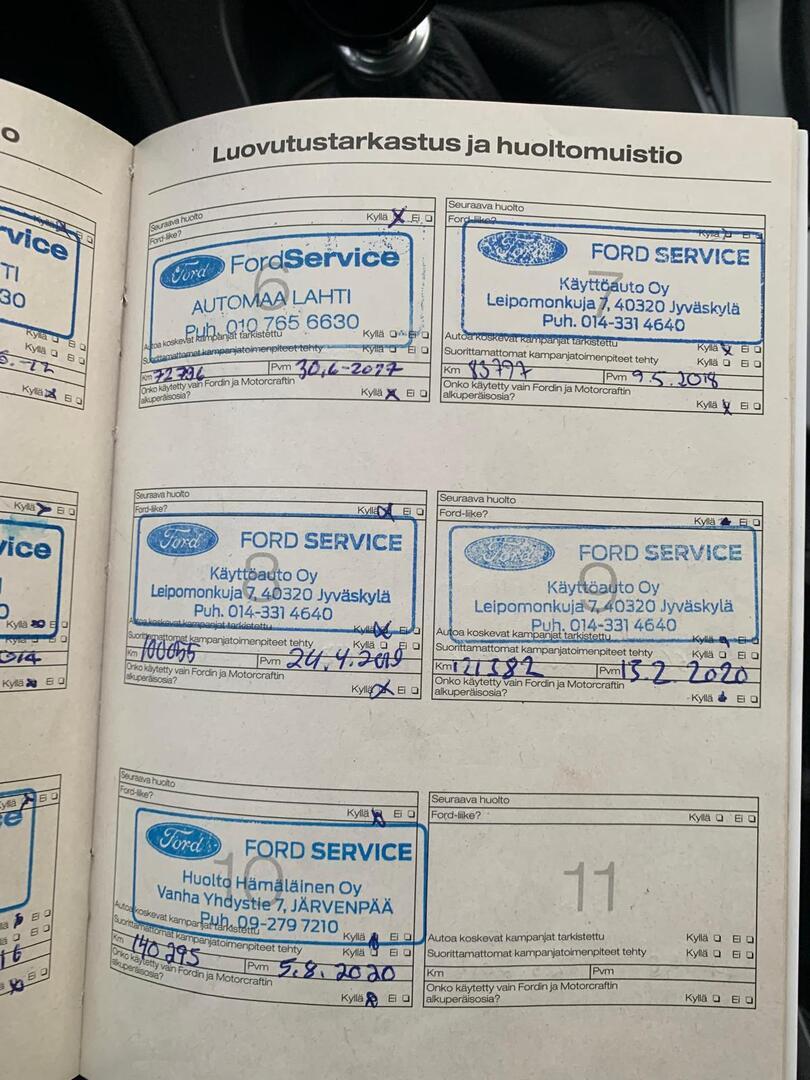 Luovutustarkastus ja huoltomuistio
Seuraava huolto
Ford-liike? Kyllä X Ei
6
Ford FordService
AUTOMAA LAHTI
Puh. 010 765 6630
Autoa koskevat kampanjat tarkistettu Kyllä Ei
Suorittamattomat kampanjatoimenpiteet tehty Kyllä Ei
Km 72796 Pvm
Onko käytetty vain Fordin ja Motorcraftin
alkuperäisosia? Kyllä X Ei
Seuraava huolto
Ford-liike? Kyllä Ei
7
FORD SERVICE
Käyttöauto Oy
Leipomonkuja 7, 40320 Jyväskylä
Puh. 014-331 4640
Autoa koskevat kampanjat tarkistettu Kyllä Ei
Suorittamattomat kampanjatoimenpiteet tehty Kyllä Ei
Km 83797 Pvm 9.5.2018
Onko käytetty vain Fordin ja Motorcraftin
alkuperäisosia? Kyllä Ei
Seuraava huolto
Ford-liike? Kyllä Ei
8
Ford FORD SERVICE
Käyttöauto Oy
Leipomonkuja 7, 40320 Jyväskylä
Puh. 014-331 4640
Autoa koskevat kampanjat tarkistettu Kyllä Ei
Suorittamattomat kampanjatoimenpiteet tehty Kyllä Ei
Km 100055 Pvm 24.4.2019
Onko käytetty vain Fordin ja Motorcraftin
alkuperäisosia? Kyllä Ei
Seuraava huolto
Ford-liike? Kyllä Ei
9
FORD SERVICE
Käyttöauto Oy
Leipomonkuja 7, 40320 Jyväskylä
Puh. 014-331 4640
Autoa koskevat kampanjat tarkistettu Kyllä Ei
Suorittamattomat kampanjatoimenpiteet tehty Kyllä Ei
Km 121382 Pvm 13.2.2020
Onko käytetty vain Fordin ja Motorcraftin
alkuperäisosia? Kyllä Ei
Seuraava huolto
Ford-liike? Kyllä Ei
10
Ford FORD SERVICE
Huolto Hämäläinen Oy
Vanha Yhdystie 7, JÄRVENPÄÄ
Puh. 09-279 7210
Autoa koskevat kampanjat tarkistettu Kyllä Ei
Suorittamattomat kampanjatoimenpiteet tehty Kyllä Ei
Km 140295 Pvm 5.8.2020
Onko käytetty vain Fordin ja Motorcraftin
alkuperäisosia? Kyllä Ei
Seuraava huolto
Ford-liike? Kyllä Ei
11
Autoa koskevat kampanjat tarkistettu Kyllä Ei
Suorittamattomat kampanjatoimenpiteet tehty Kyllä Ei
Km Pvm
Onko käytetty vain Fordin ja Motorcraftin
alkuperäisosia? Kyllä Ei